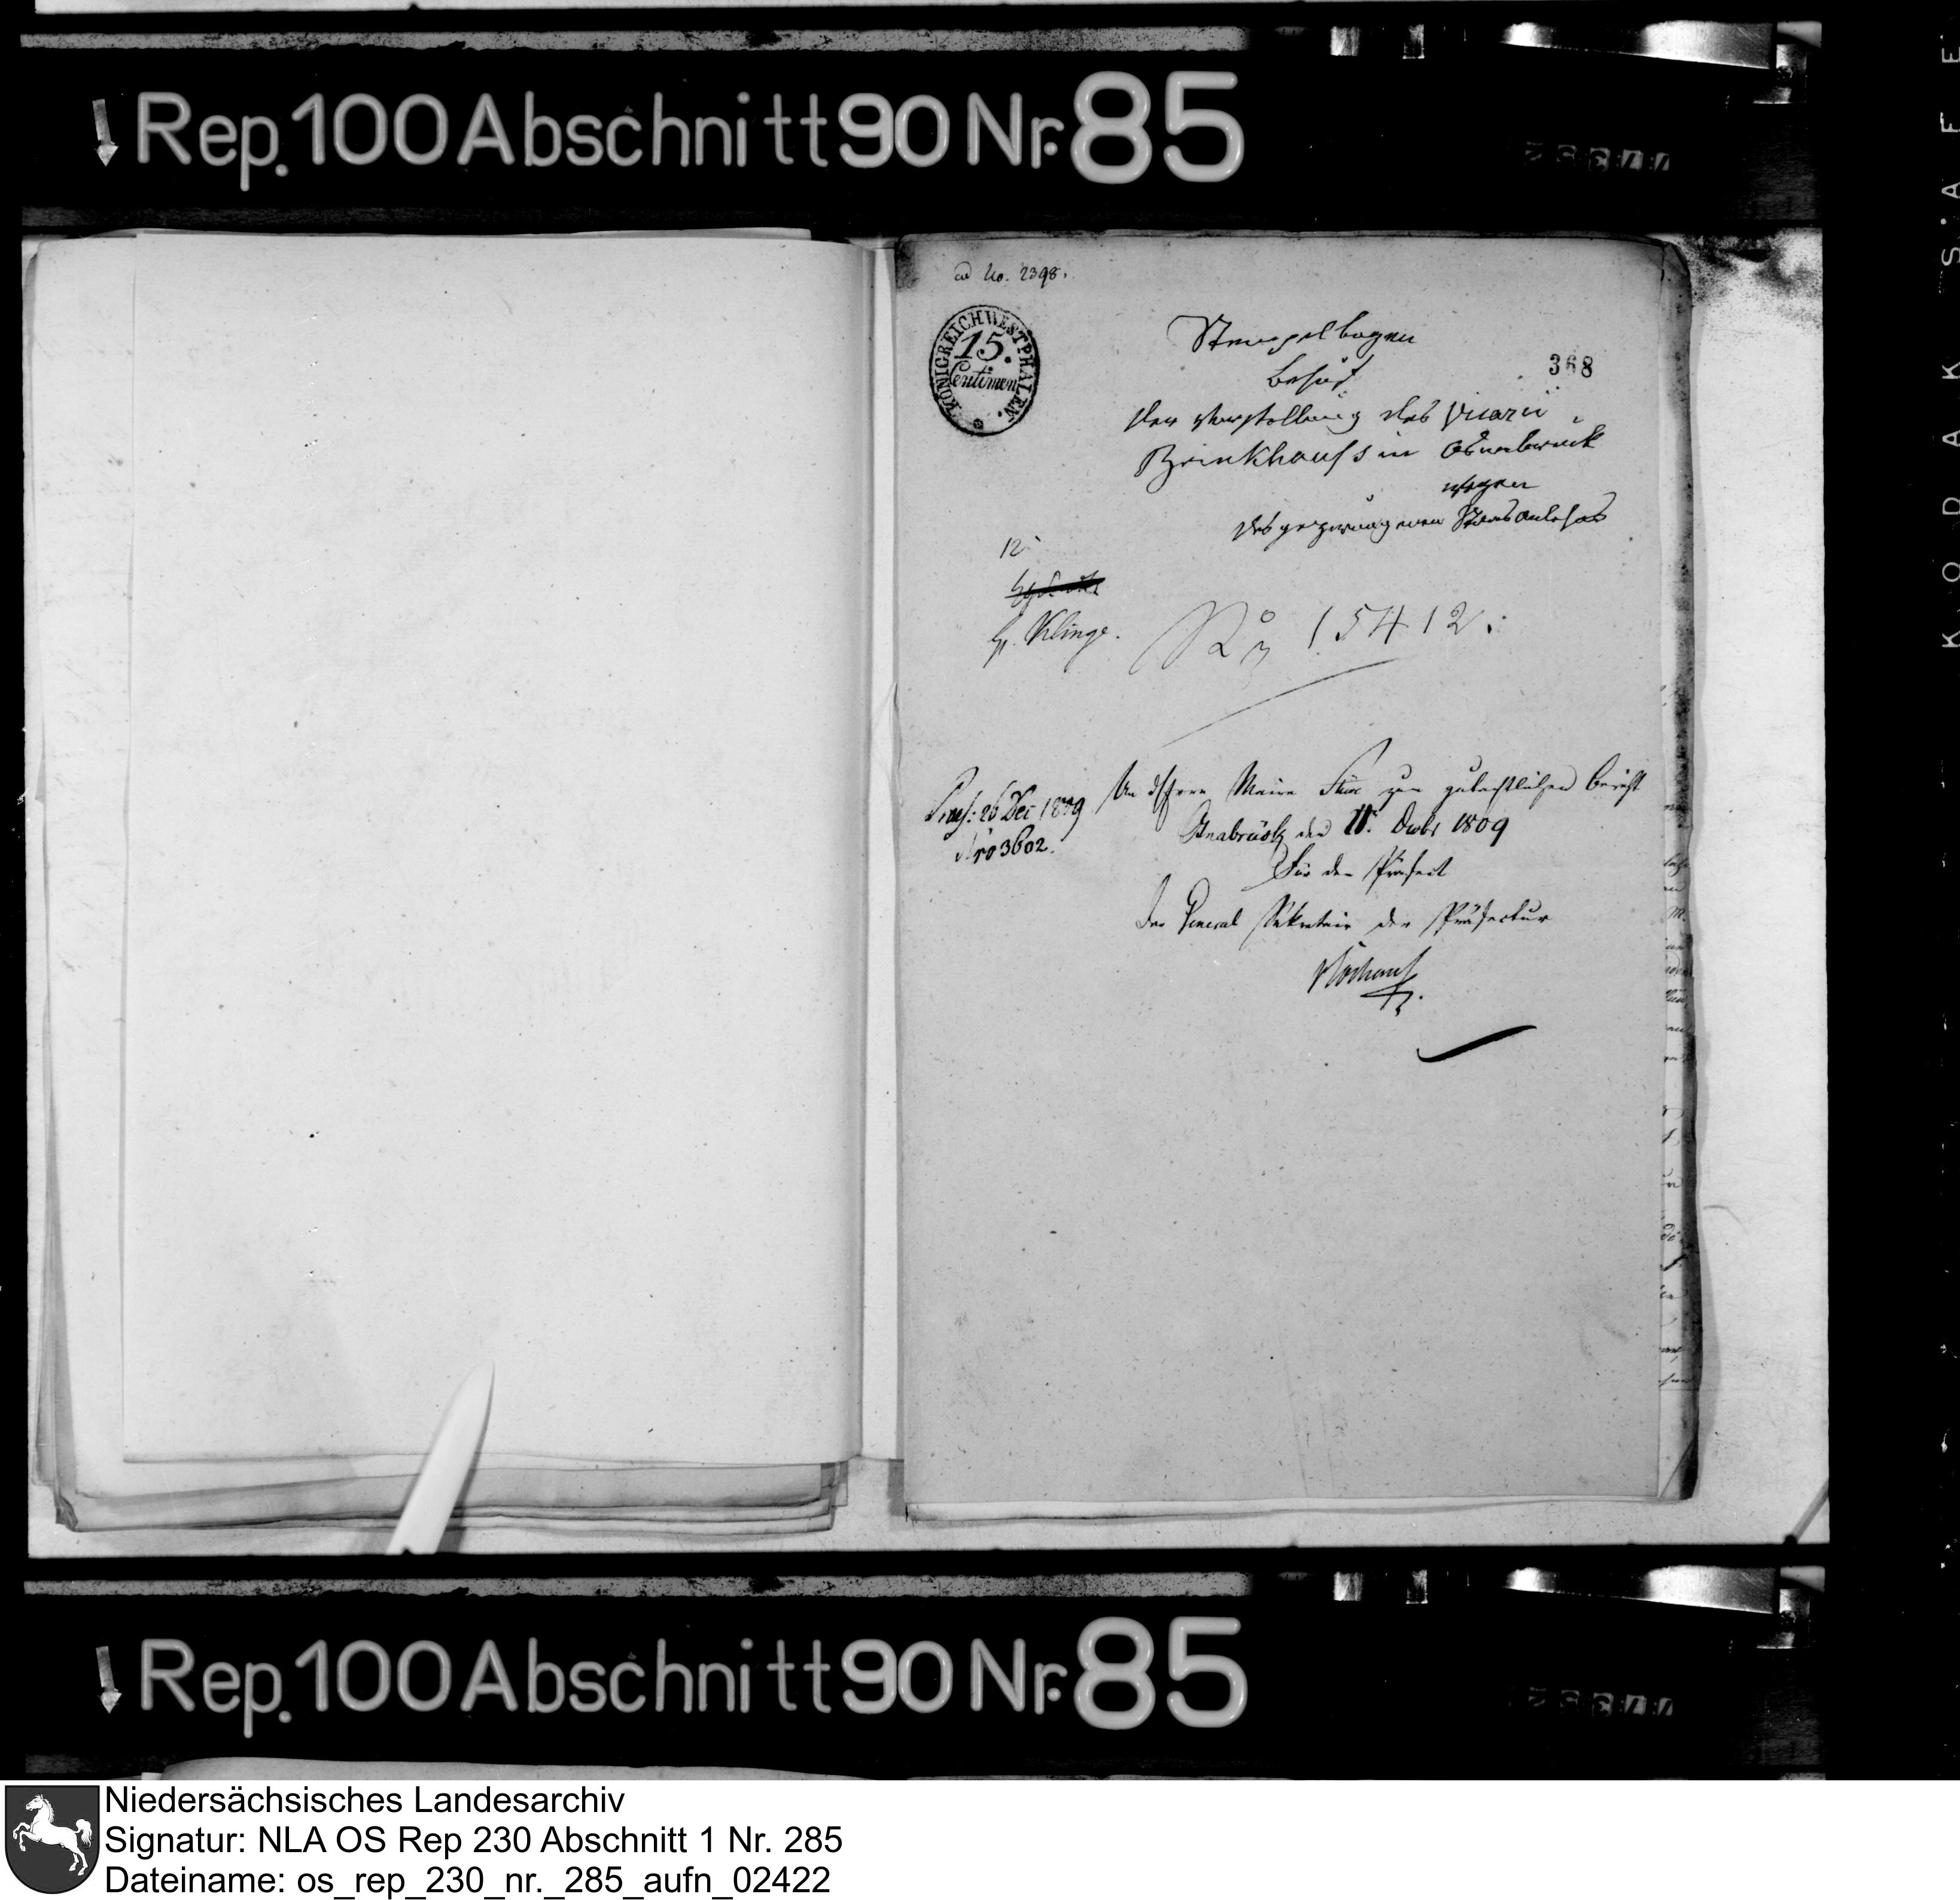 Rep. 100 Abschnitt 90 Nr. 85
ad No. 2398.
KÖNIGREICH WESTPHALEN.
15.
Centimen
Stempelbogen
behuf
368
der Vorstellung des Vicarii
Brinkhaufs in Osnabrück
wegen
des gezwungenen
12
H. Klinge.
No 15412.
An Herrn Maire zum gutachtlichen Bericht
Praes: 26 Dec 1809
Nro 3602.
Osnabrück den 11. Decbr 1809
Für den Präfect
Der General Sekretair der Präfectur
Rep. 100 Abschnitt 90 Nr. 85
KODAK SAFE
Niedersächsisches Landesarchiv
Signatur: NLA OS Rep 230 Abschnitt 1 Nr. 285
Dateiname: os_rep_230_nr._285_aufn_02422